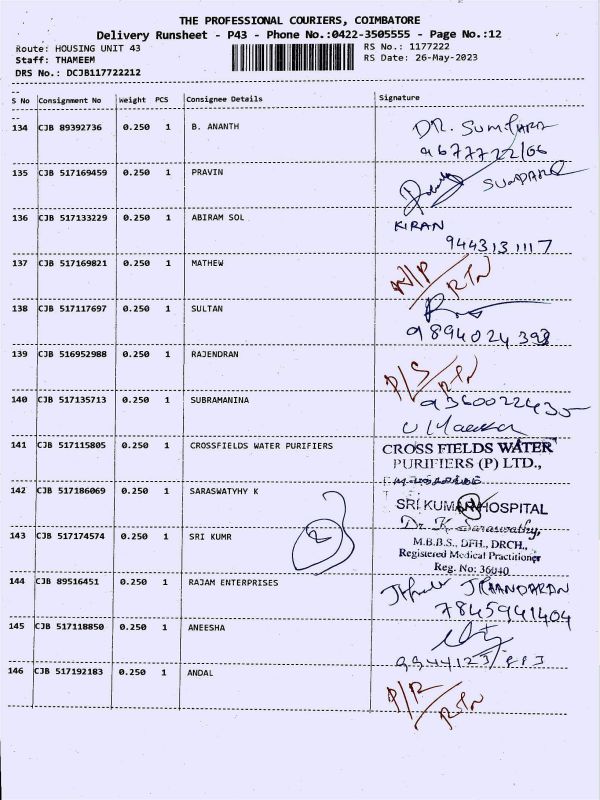 THE PROFESSIONAL COURIERS, COIMBATORE
Delivery Runsheet - P43 - Phone No.:0422-3505555 - Page No.:12
Route: HOUSING UNIT 43 RS No.: 1177222
Staff: THAMEEM RS Date: 26-May-2023
DRS No.: DCJB117722212
S No Consignment No Weight PCS Consignee Details Signature
134 CJB 89392736 0.250 1 B. ANANTH DR.
135 CJB 517169459 0.250 1 PRAVIN
136 CJB 517133229 0.250 1 ABIRAM SOL KIRAN
9443131117
137 CJB 517169821 0.250 1 MATHEW N/P RTN
138 CJB 517117697 0.250 1 SULTAN
9894024398
139 CJB 516952988 0.250 1 RAJENDRAN P/S RTN
140 CJB 517135713 0.250 1 SUBRAMANINA 9360022435
141 CJB 517115805 0.250 1 CROSSFIELDS WATER PURIFIERS CROSS FIELDS WATER
PURIFIERS (P) LTD.,
142 CJB 517186069 0.250 1 SARASWATYHY K SRI KUMARAN HOSPITAL
143 CJB 517174574 0.250 1 SRI KUMR 2 Dr. K. Saraswathy,
M.B.B.S., DFH., DRCH.,
Registered Medical Practitioner
Reg. No: 36040
144 CJB 89516451 0.250 1 RAJAM ENTERPRISES
7845941404
145 CJB 517118850 0.250 1 ANEESHA
146 CJB 517192183 0.250 1 ANDAL P/R RTN